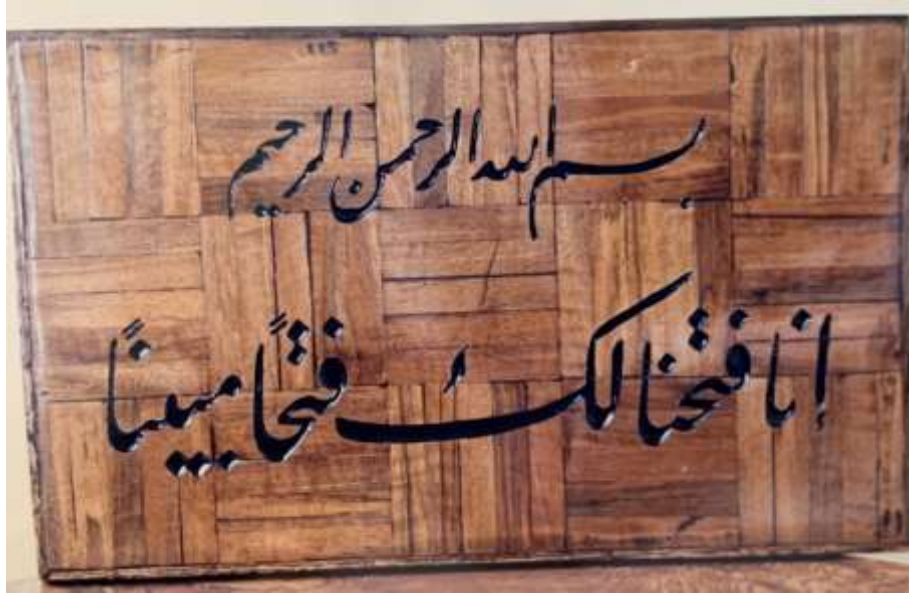 بسم الله الرحمن الرحیم
انا فتحنا لکُ فتحًا مبینًا